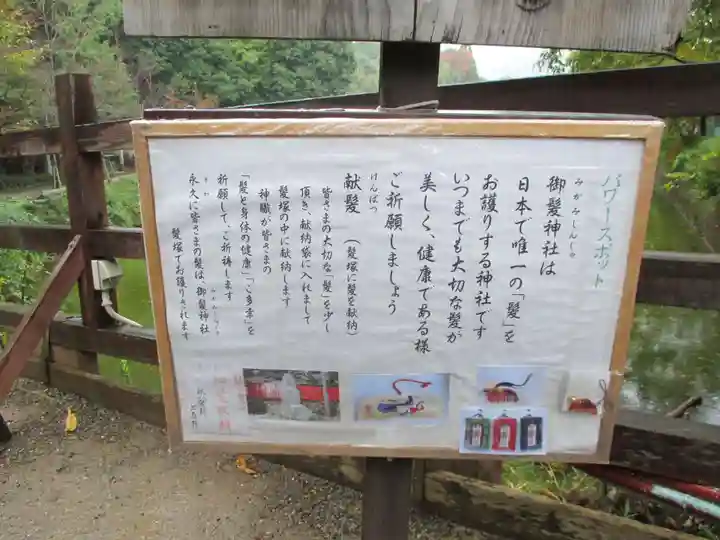 パワースポット
みかみじんじゃ
御髪神社は
日本で唯一の「髪」を
お護りする神社です
いつまでも大切な髪が
美しく、健康である様
ご祈願しましょう
けんぱつ
献髪 （髪塚に髪を献納）
皆さまの大切な「髪」を少し
頂き、献納袋に入れまして
髪塚の中に献納します
神職が皆さまの
「髪と身体の健康」「ご多幸」を
祈願して、ご祈祷します
永久に皆さまの髪は、御髪神社
髪塚でお護りされます